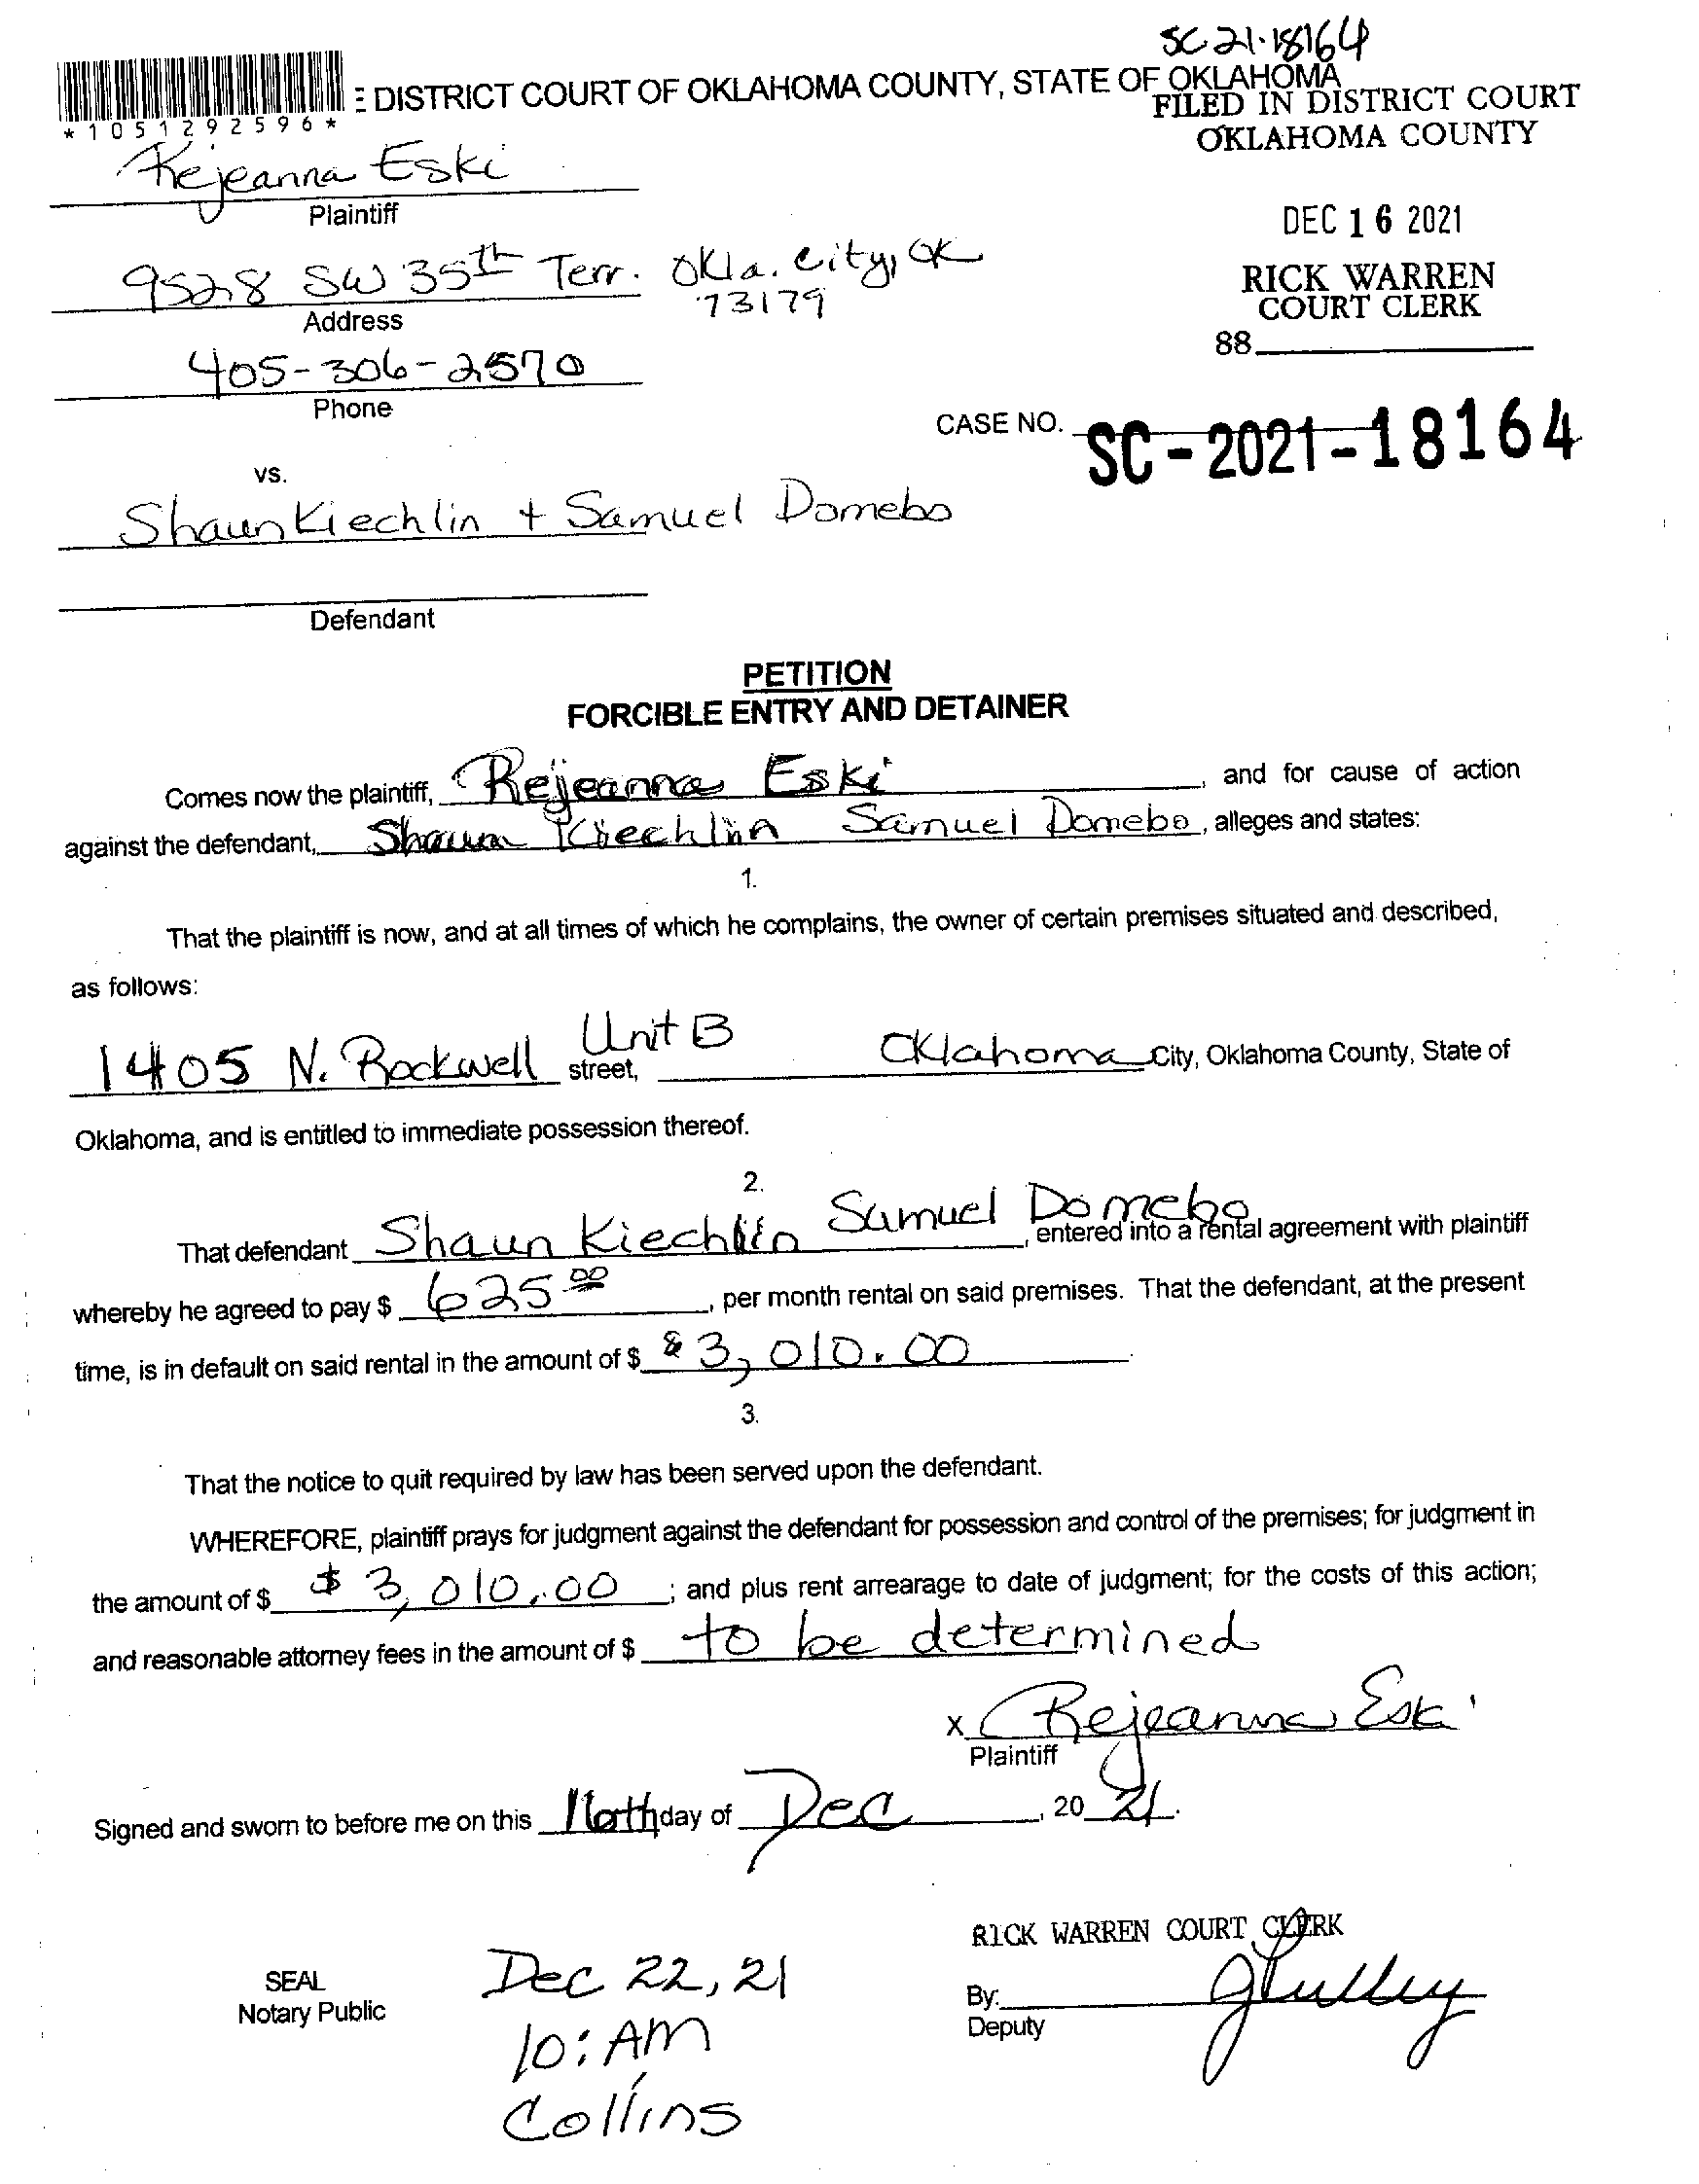 SC-21-18164
DISTRICT COURT OF OKLAHOMA COUNTY, STATE OF OKLAHOMA
FILED IN DISTRICT COURT
OKLAHOMA COUNTY
*1051292596*
Rejeanna Eski
Plaintiff
DEC 16 2021
9528 SW 35th Terr. Okla. City, OK
73179
Address
RICK WARREN
COURT CLERK
88
405-306-2570
Phone
CASE NO. SC-2021-18164
vs.
Shaun Kiechlin + Samuel Domebo
Defendant
PETITION
FORCIBLE ENTRY AND DETAINER
Comes now the plaintiff, Rejeanna Eski, and for cause of action
against the defendant, Shaun Kiechlin Samuel Domebo, alleges and states:
1.
That the plaintiff is now, and at all times of which he complains, the owner of certain premises situated and described,
as follows:
1405 N. Rockwell street, Unit B Oklahoma City, Oklahoma County, State of
Oklahoma, and is entitled to immediate possession thereof.
2.
That defendant Shaun Kiechlin Samuel Domebo, entered into a rental agreement with plaintiff
whereby he agreed to pay $ 625.00, per month rental on said premises. That the defendant, at the present
time, is in default on said rental in the amount of $ $3,010.00.
3.
That the notice to quit required by law has been served upon the defendant.
WHEREFORE, plaintiff prays for judgment against the defendant for possession and control of the premises; for judgment in
the amount of $ $ 3,010.00; and plus rent arrearage to date of judgment; for the costs of this action;
and reasonable attorney fees in the amount of $ to be determined
x Rejeanna Eski
Plaintiff
Signed and sworn to before me on this 16th day of Dec, 20 21.
RICK WARREN COURT CLERK
SEAL
Notary Public
Dec 22, 21
10: AM
Collins
By:
Deputy